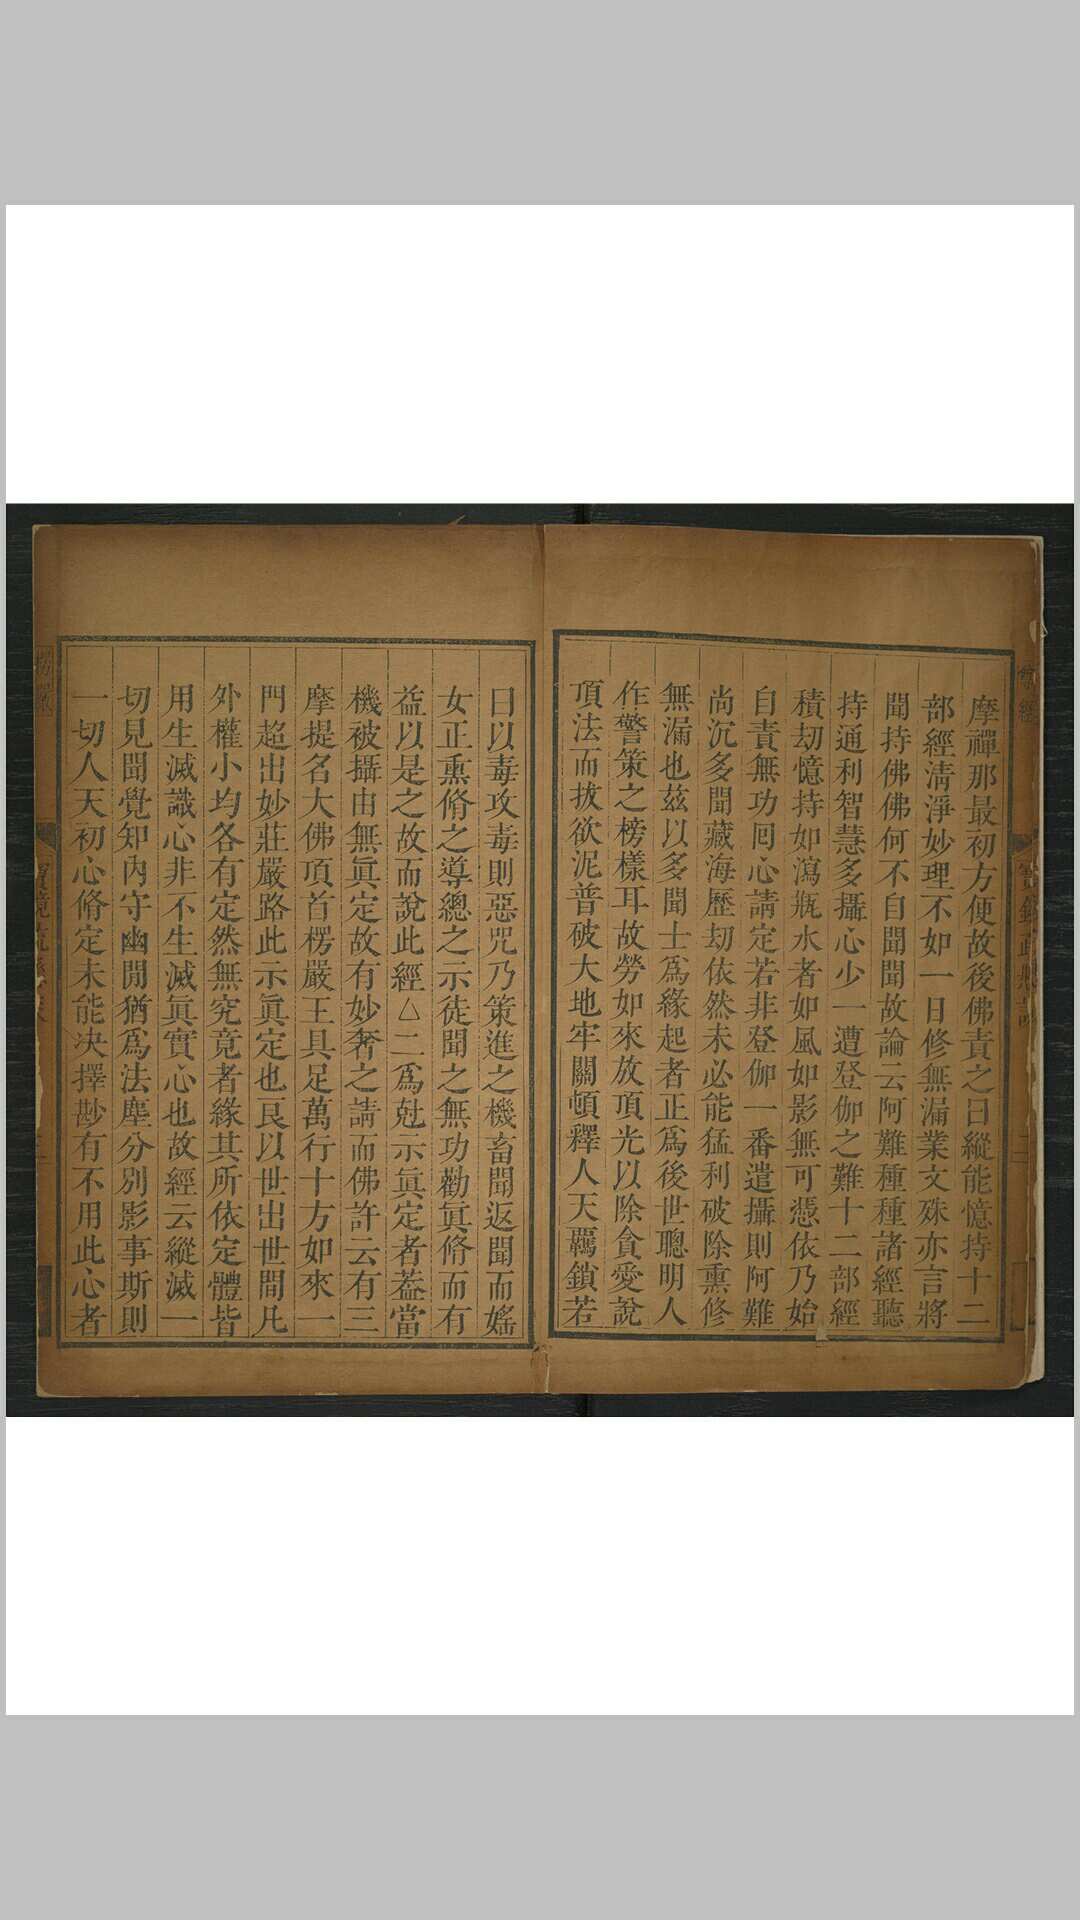 摩禪那最初方便故後佛責之曰縱能憶持十二
部經清淨妙理不如一日修無漏業文殊亦言將
聞持佛佛何不自聞聞故論云阿難種種諸經聽
持通利智慧多攝心少一遭登伽之難十二部經
積劫憶持如瀉瓶水者如風如影無可憑依乃始
自責無功囘心請定若非登伽一番遣攝則阿難
尚沉多聞藏海歷劫依然未必能猛利破除熏修
無漏也茲以多聞士爲緣起者正爲後世聰明人
作警策之榜樣耳故勞如來放頂光以除貪愛說
頂法而拔欲泥普破大地牢關頓釋人天羈鎖若
曰以毒攻毒則惡咒乃策進之機畜聞返聞而婬
女正熏脩之導總之示徒聞之無功勸眞脩而有
益以是之故而說此經△二爲尅示眞定者葢當
機被攝由無眞定故有妙奢之請而佛許云有三
摩提名大佛頂首楞嚴王具足萬行十方如來一
門超出妙莊嚴路此示眞定也良以世出世間凡
外權小均各有定然無究竟者緣其所依定體皆
用生滅識心非不生滅眞實心也故經云縱滅一
切見聞覺知內守幽閒猶爲法塵分別影事斯則
一切人天初心脩定未能决擇尠有不用此心者